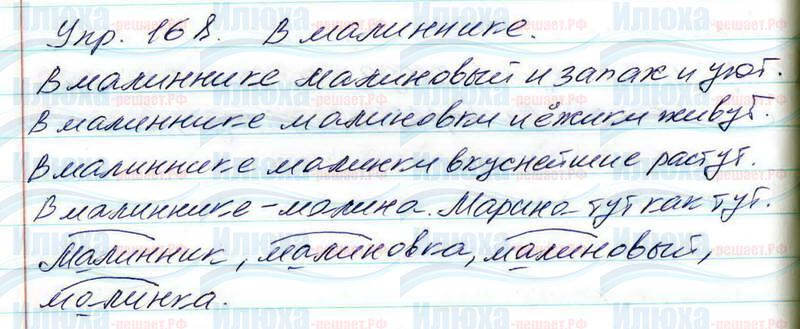 Упр. 168. В малиннике.
В малиннике малиновый и запах и уют.
В малиннике малиновки и ёжики живут.
В малиннике малинки вкуснейшие растут.
В малиннике - малина. Марина - тут как тут.
Малинник, малиновка, малиновый,
малинка.